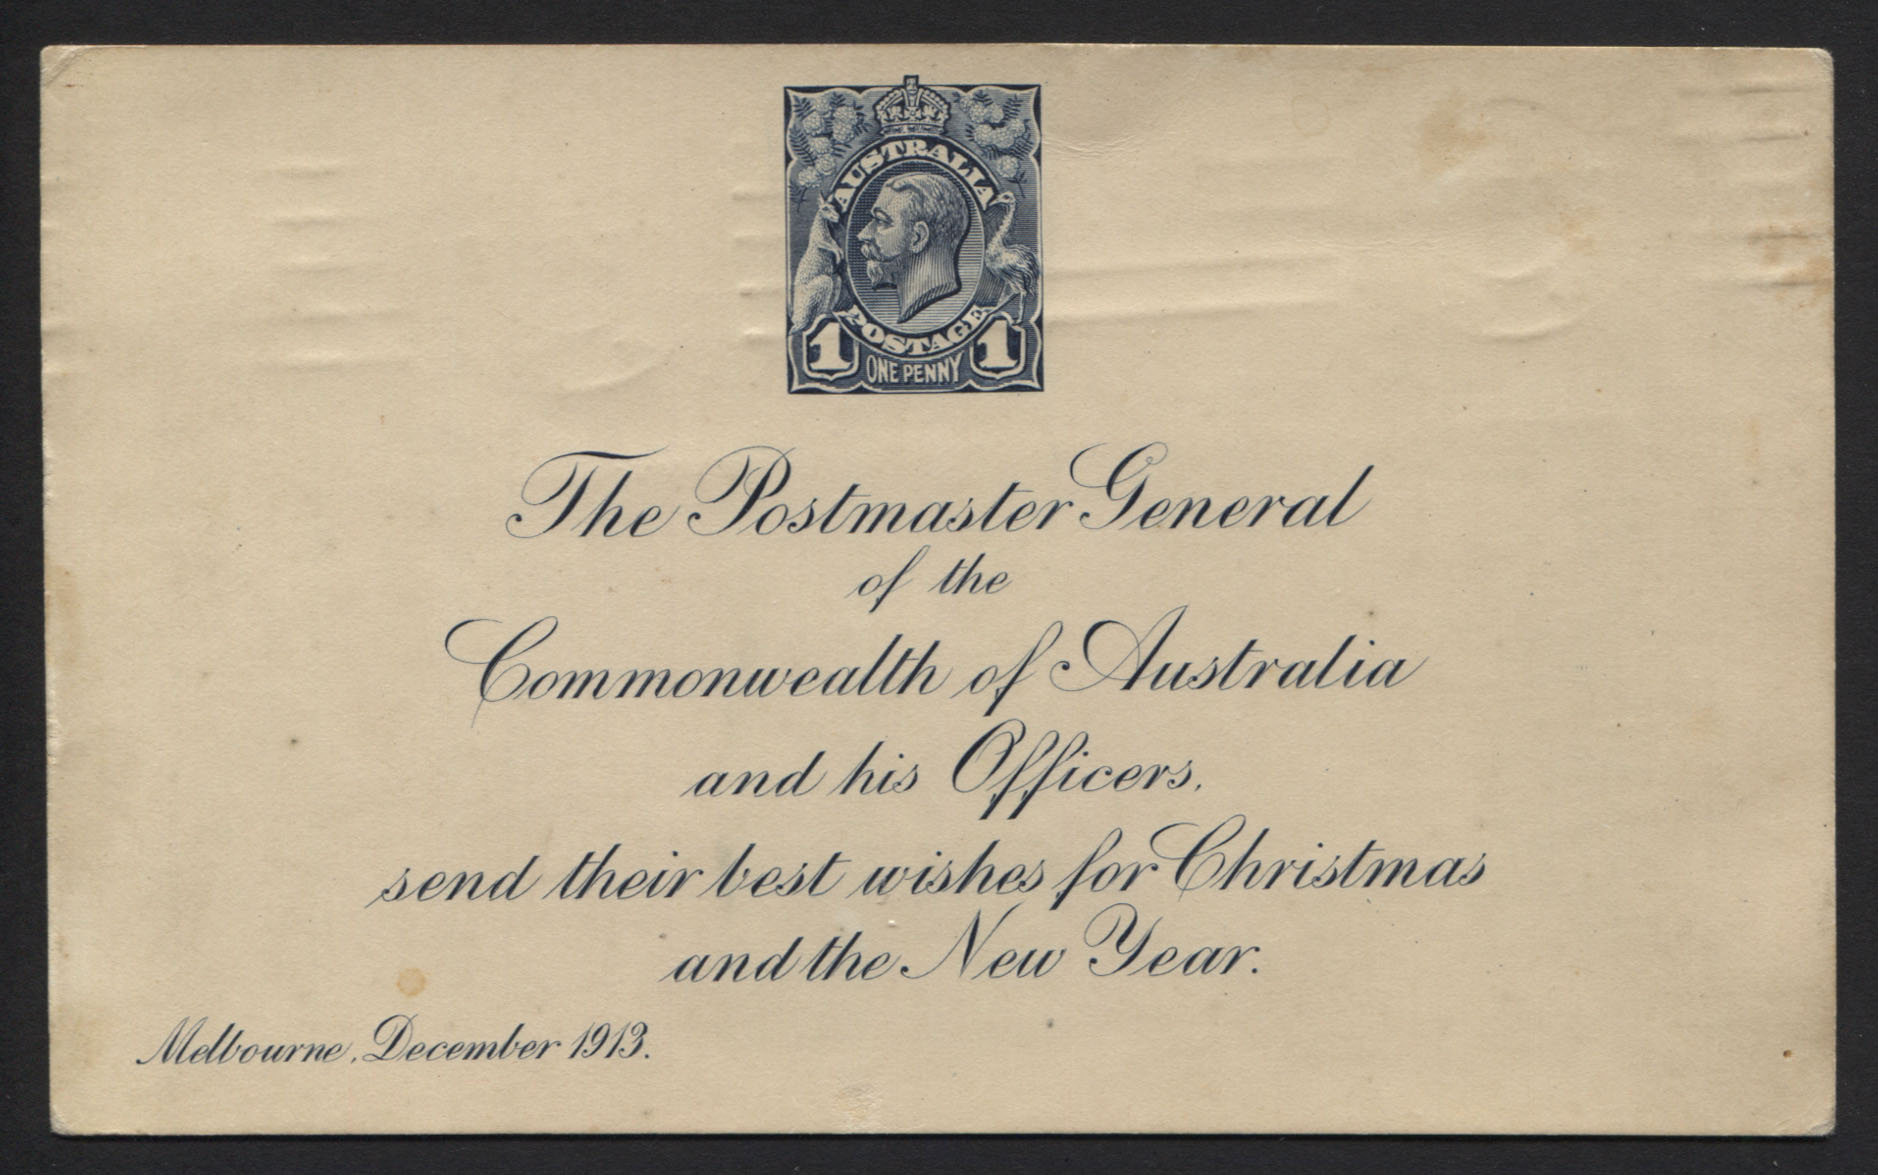 AUSTRALIA
POSTAGE
1 ONE PENNY 1
The Postmaster General
of the
Commonwealth of Australia
and his Officers,
send their best wishes for Christmas
and the New Year.
Melbourne, December 1913.